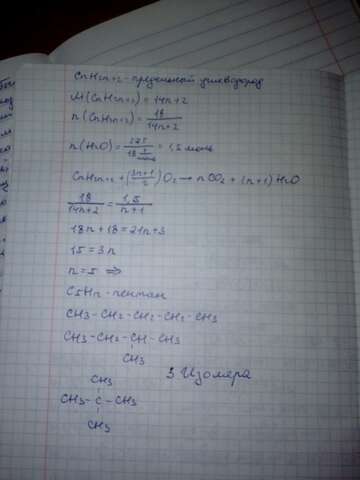 CnH2n+2 - предельный углеводород
M(CnH2n+2) = 14n+2
n(CnH2n+2) = 18/14n+2
n(H2O) = 27г/18 г/моль = 1,5 моль
CnH2n+2 + (3n+1/2) O2 → nCO2 + (n+1) H2O
18/14n+2 = 1,5/n+1
18n + 18 = 21n+3
15 = 3n
n = 5 ⇒
C5H12 - пентан
CH3 - CH2 - CH2 - CH2 - CH3
CH3 - CH2 - CH - CH3
CH3
3 Изомера
CH3
CH3 - C - CH3
CH3